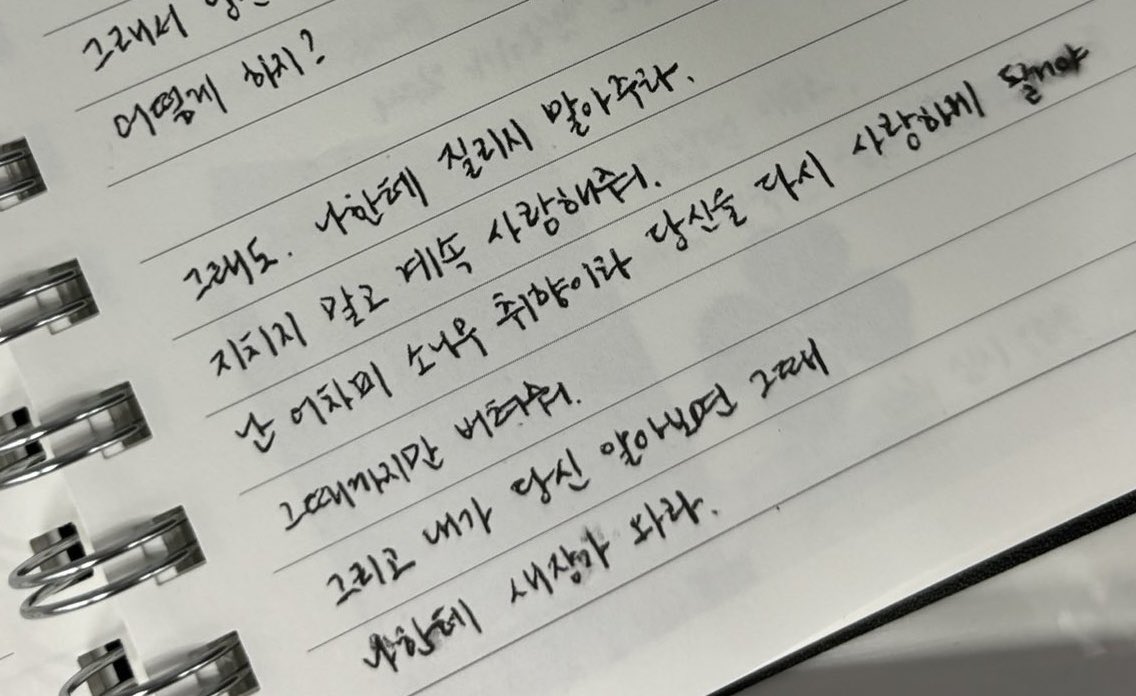 그래서
어떻게 하지?
그래도. 나한테 질리지 말아주라.
지치지 말고 계속 사랑해줘.
난 어차피 소나무 취향이라 당신을 다시 사랑하게 될거야
그때까지만 버텨줘.
그리고 내가 당신 알아보면 그때
나한테 새장가 와라.